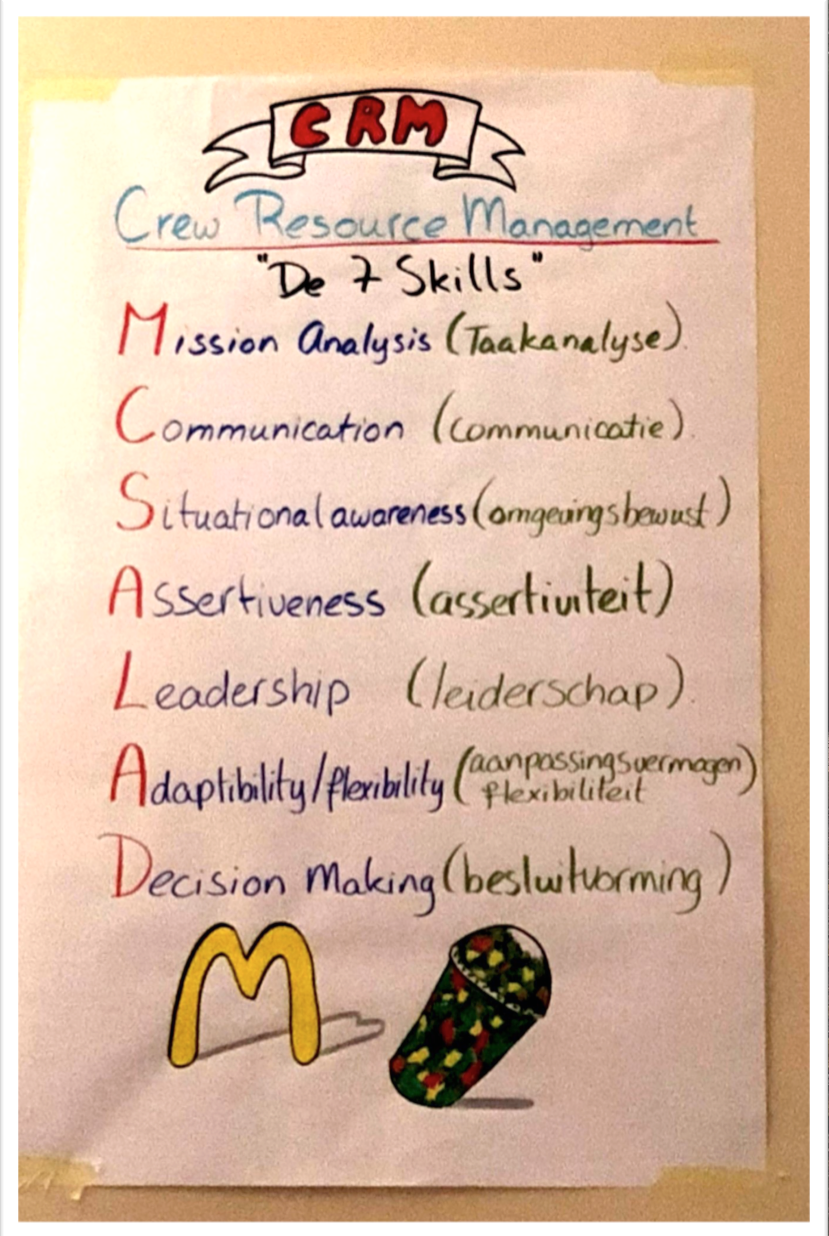 CRM
Crew Resource Management
"De 7 Skills"
Mission Analysis (Taakanalyse).
Communication (communicatie).
Situational awareness (omgevingsbewust)
Assertiveness (assertiviteit)
Leadership (leiderschap).
Adaptibility/flexibility (aanpassingsvermogen)
flexibiliteit
Decision Making (besluitvorming)
M